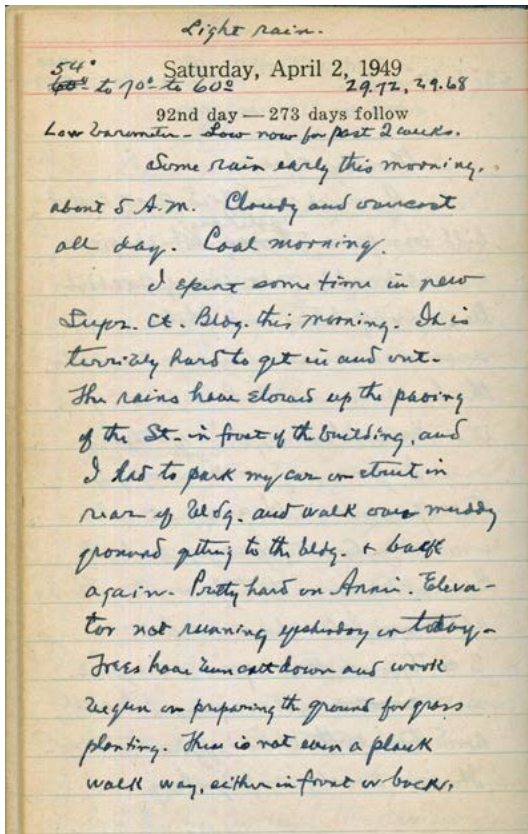 Light rain.
54°
60° to 70° to 60° 29.72, 29.68
Saturday, April 2, 1949
92nd day — 273 days follow
Low barometer - Low now for past 2 weeks.
Some rain early this morning,
about 5 A.M. Cloudy and overcast
all day. Cool morning.
I spent some time in new
Supr. Ct. Bldg. this morning. It is
terribly hard to get in and out.
The rains have slowed up the paving
of the St. in front of the building, and
I had to park my car on street in
rear of bldg. and walk over muddy
ground getting to the bldg. & back
again. Pretty hard on Annie. Eleva-
tor not running yesterday or today.
Trees have been cut down and work
begun on preparing the ground for grass
planting. There is not even a plank
walk way, either in front or back.